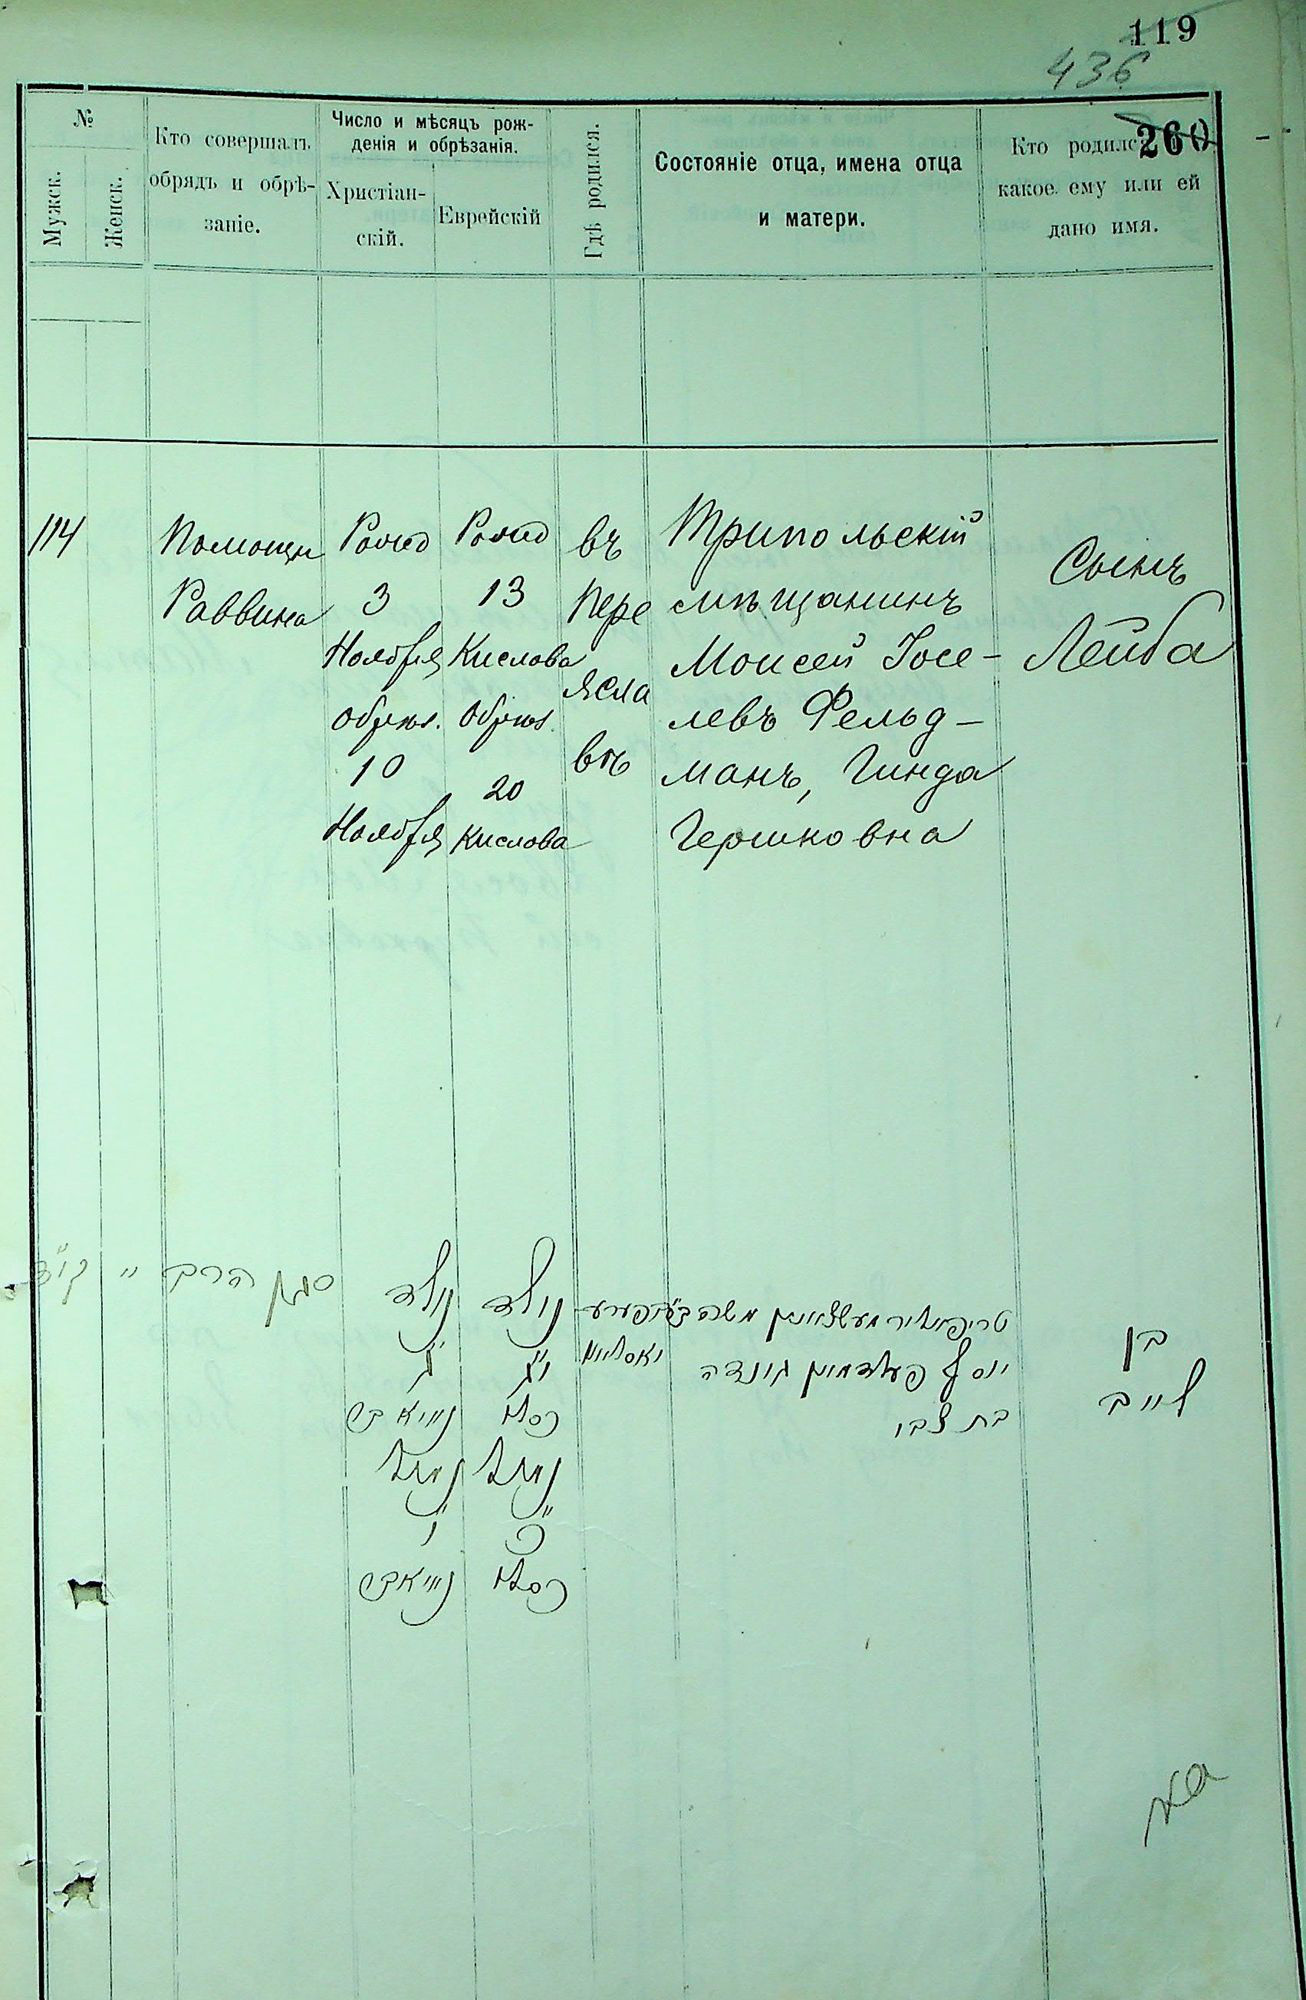 119
436
260
№
Мужск.
Женск.
Кто совершалъ
обрядъ и обрѣ-
заніе.
Число и мѣсяцъ рож-
денія и обрѣзанія.
Христіан-
скій.
Еврейскій
Гдѣ родился.
Состояніе отца, имена отца
и матери.
Кто родился
какое ему или ей
дано имя.
114
Помощн
Раввина
Рожд
3
Ноября
обрѣз.
10
Ноября
Рожд
13
Кислова
Обрѣз.
20
Кислова
въ
Пере
ясла
вѣ
Трипольскій
мѣщанинъ
Моисей Іосе-
левъ Фельд-
манъ, Гинда
Гершковна
Сынъ
Лейба
קי"ד
"
סגן הרב
נולד
ג'
נימול
י'
נולד
י"ג
כסלו
נימול
כ'
כסלו
משה
יוסף פעלדמאן הינדה
בת צבי
בן
לייב